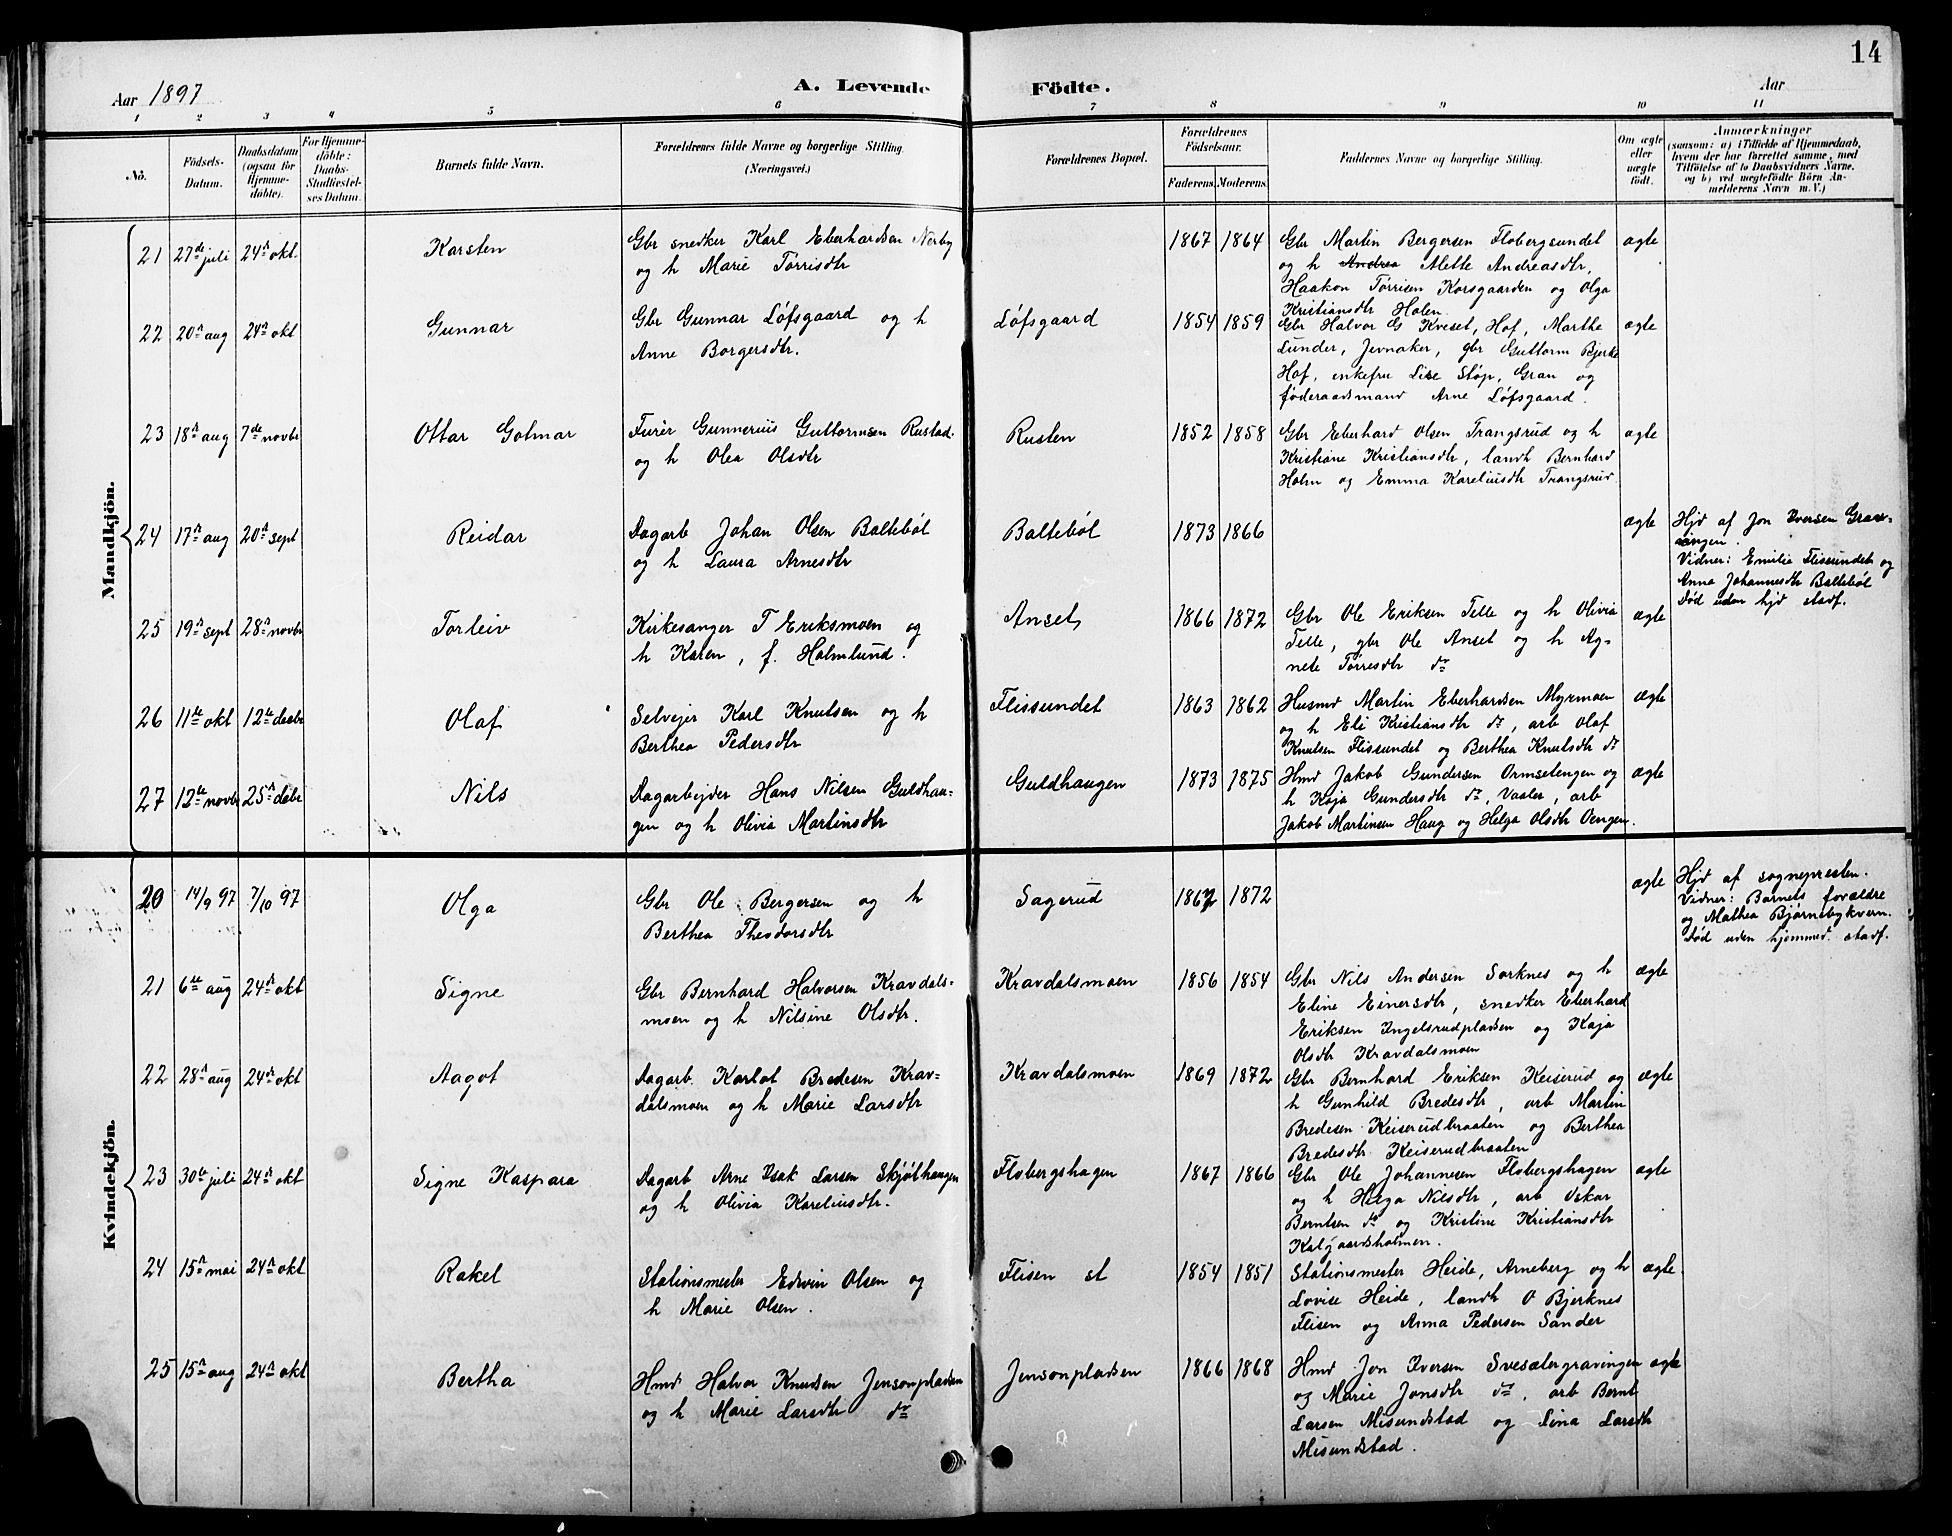 14
Aar 1897
A. Levende Födte.
Aar
1 2 3 4 5 6 7 8 9 10 11
Nō.
Födsels-
Datum.
Daabsdatum
(ogsaa for
Hjemme-
döbte).
For Hjemme-
döbte:
Daabs-
Stadfæstel-
ses Datum.
Barnets fulde Navn.
Forældrenes fulde Navne og borgerlige Stilling.
(Næringsvei.)
Forældrenes Bopæl.
Forældrenes
Födselsaar.
Faderens. Moderens.
Faddernes Navne og borgerlige Stilling.
Om ægte
eller
uægte
födt.
Anmærkninger
(saasom: a) i Tilfælde af Hjemmedaab,
hvem der har forrettet samme, med
Tilföielse af to Daabsvidners Navne.
og b) ved uægtefödte Börn An-
melderens Navn m. V.)
Mandkjön.
21 27de juli 24n okt. Karsten
Gbr snedker Karl Eberhardsen Nerby
og h Marie Tørrisdtr
1867 1864
Gbr Martin Bergersen Flobergsundet
og h Andrea Mette Andreasdtr,
Haakon Tørrisen Korsgaarden og Olga
Kristiansdtr Holen
ægte
22 20n aug 24n okt Gunnar
Gbr Gunnar Løfsgaard og h
Anne Borgersdtr.
Løfsgaard
1854 1859
Gbr Halvor G Kveset, Hof, Marthe
Lunder, Jevnaker, gbr Guttorm Bjerke
Hof, enkefru Lise Støp, Gran og
føderaadsmand Arne Løfsgaard.
ægte
23 18n aug 7de novbr Ottar Gotmar
Furér Gunnerius Guttormsen Rustad.
og h Olea Olsdtr
Rusten
1852 1858
Gbr Eberhard Olsen Trangsrud og h
Kristiane Kristiansdtr, landh Bernhard
Holm og Emma Kareliusdtr Trangsrud
ægte
24 17n aug 20n sept Reidar
Dagarb Johan Olsen Baltebøl
og h Laura Arnesdtr
Baltebøl
1873 1866
ægte
Hjd af Jon Iversen Grav-
ningen.
Vidner: Emilie Flissundet og
Anna Johannesdtr Baltebøl
Død uden hjd stadf.
25 19n sept 28n novbr Torleiv
Kirkesanger T Eriksmoen og
h Karen, f. Holmlund.
Anset
1866 1872
Gbr Ole Eriksen Telle og h Olivia
Telle, gbr Ole Anset og h Ag-
nete Tørresdtr do
ægte
26 11te okt 12te decbr Olaf
Selvejer Karl Knutsen og h
Berthea Pedersdtr
Flissundet
1863 1862
Husmd Martin Eberhardsen Myrmoen
og h Eli Kristiansdtr do, arb Olaf
Knutsen Flissundet og Berthea Knutsdtr do
ægte
27 12te novbr 25n decbr Nils
Dagarbejder Hans Nilsen Guldhau-
gen og h Olivia Martinsdtr
Guldhaugen
1873 1875
Hmd Jakob Gundersen Ormsetengen og
h Kaja Gundersdtr do, Vaaler, arb
Jakob Martinsen Haug og Helga Olsdtr Oengen.
ægte
Kvindekjön.
20 14/9 97 7/10 97 Olga
Gbr Ole Bergersen og h
Berthea Theodorsdtr
Sagerud
1867 1872
ægte
Hjd af sognepresten.
Vidner: Barnets forældre
og Mathea Bjørnebykvern.
Død uden hjemmed. stadf.
21 6te aug 24n okt Signe
Gbr Bernhard Halvorsen Kravdals-
moen og h Nilsine Olsdtr.
Kravdalsmoen
1856 1854
Gbr Nils Andersen Sorknes og h
Eline Einersdtr, snedker Eberhard
Eriksen Ingelsrudpladsen og Kaja
Olsdtr Kravdalsmoen
ægte
22 28n aug 24n okt Aagot
Dagarb. Karlot Bredesen Krav-
dalsmoen og h Marie Larsdtr
Kravdalsmoen
1869 1872
Gbr Bernhard Eriksen Keiserud og
h Gunhild Bredesdtr, arb Martin
Bredesen Keiserudbraaten og Berthea
Bredesdtr Keiserudbraaten
ægte
23 30te juli 24n okt Signe Kaspara
Dagarb Arne Isak Larsen Skjølhaugen
og h Olivia Kareliusdtr.
Flobergshagen
1867 1866
Gbr Ole Johannesen Flobergshagen
og h Helga Nilsdtr, arb Oskar
Berntsen do og Kristine Kristiansdtr
Kalgaardsholmen.
ægte
24 15n mai 24n okt Rakel
Stationsmester Edvin Olsen og
h Marie Olsen.
Flisen st
1854 1851
Stationsmester Heide, Arneberg og h
Lovise Heide, landh O Bjerknes
Flisen og Anna Pedersen Sander
ægte.
25 15n aug 24n okt Bertha
Hmd Halvor Knudsen Jensonpladsen
og h Marie Larsdtr do
Jensonpladsen
1866 1868
Hmd Jon Iversen Svesætergravingen
og Marie Jonsdtr do, arb Bernt
Larsen Misundstad og Lina Larsdtr
Misundstad.
ægte